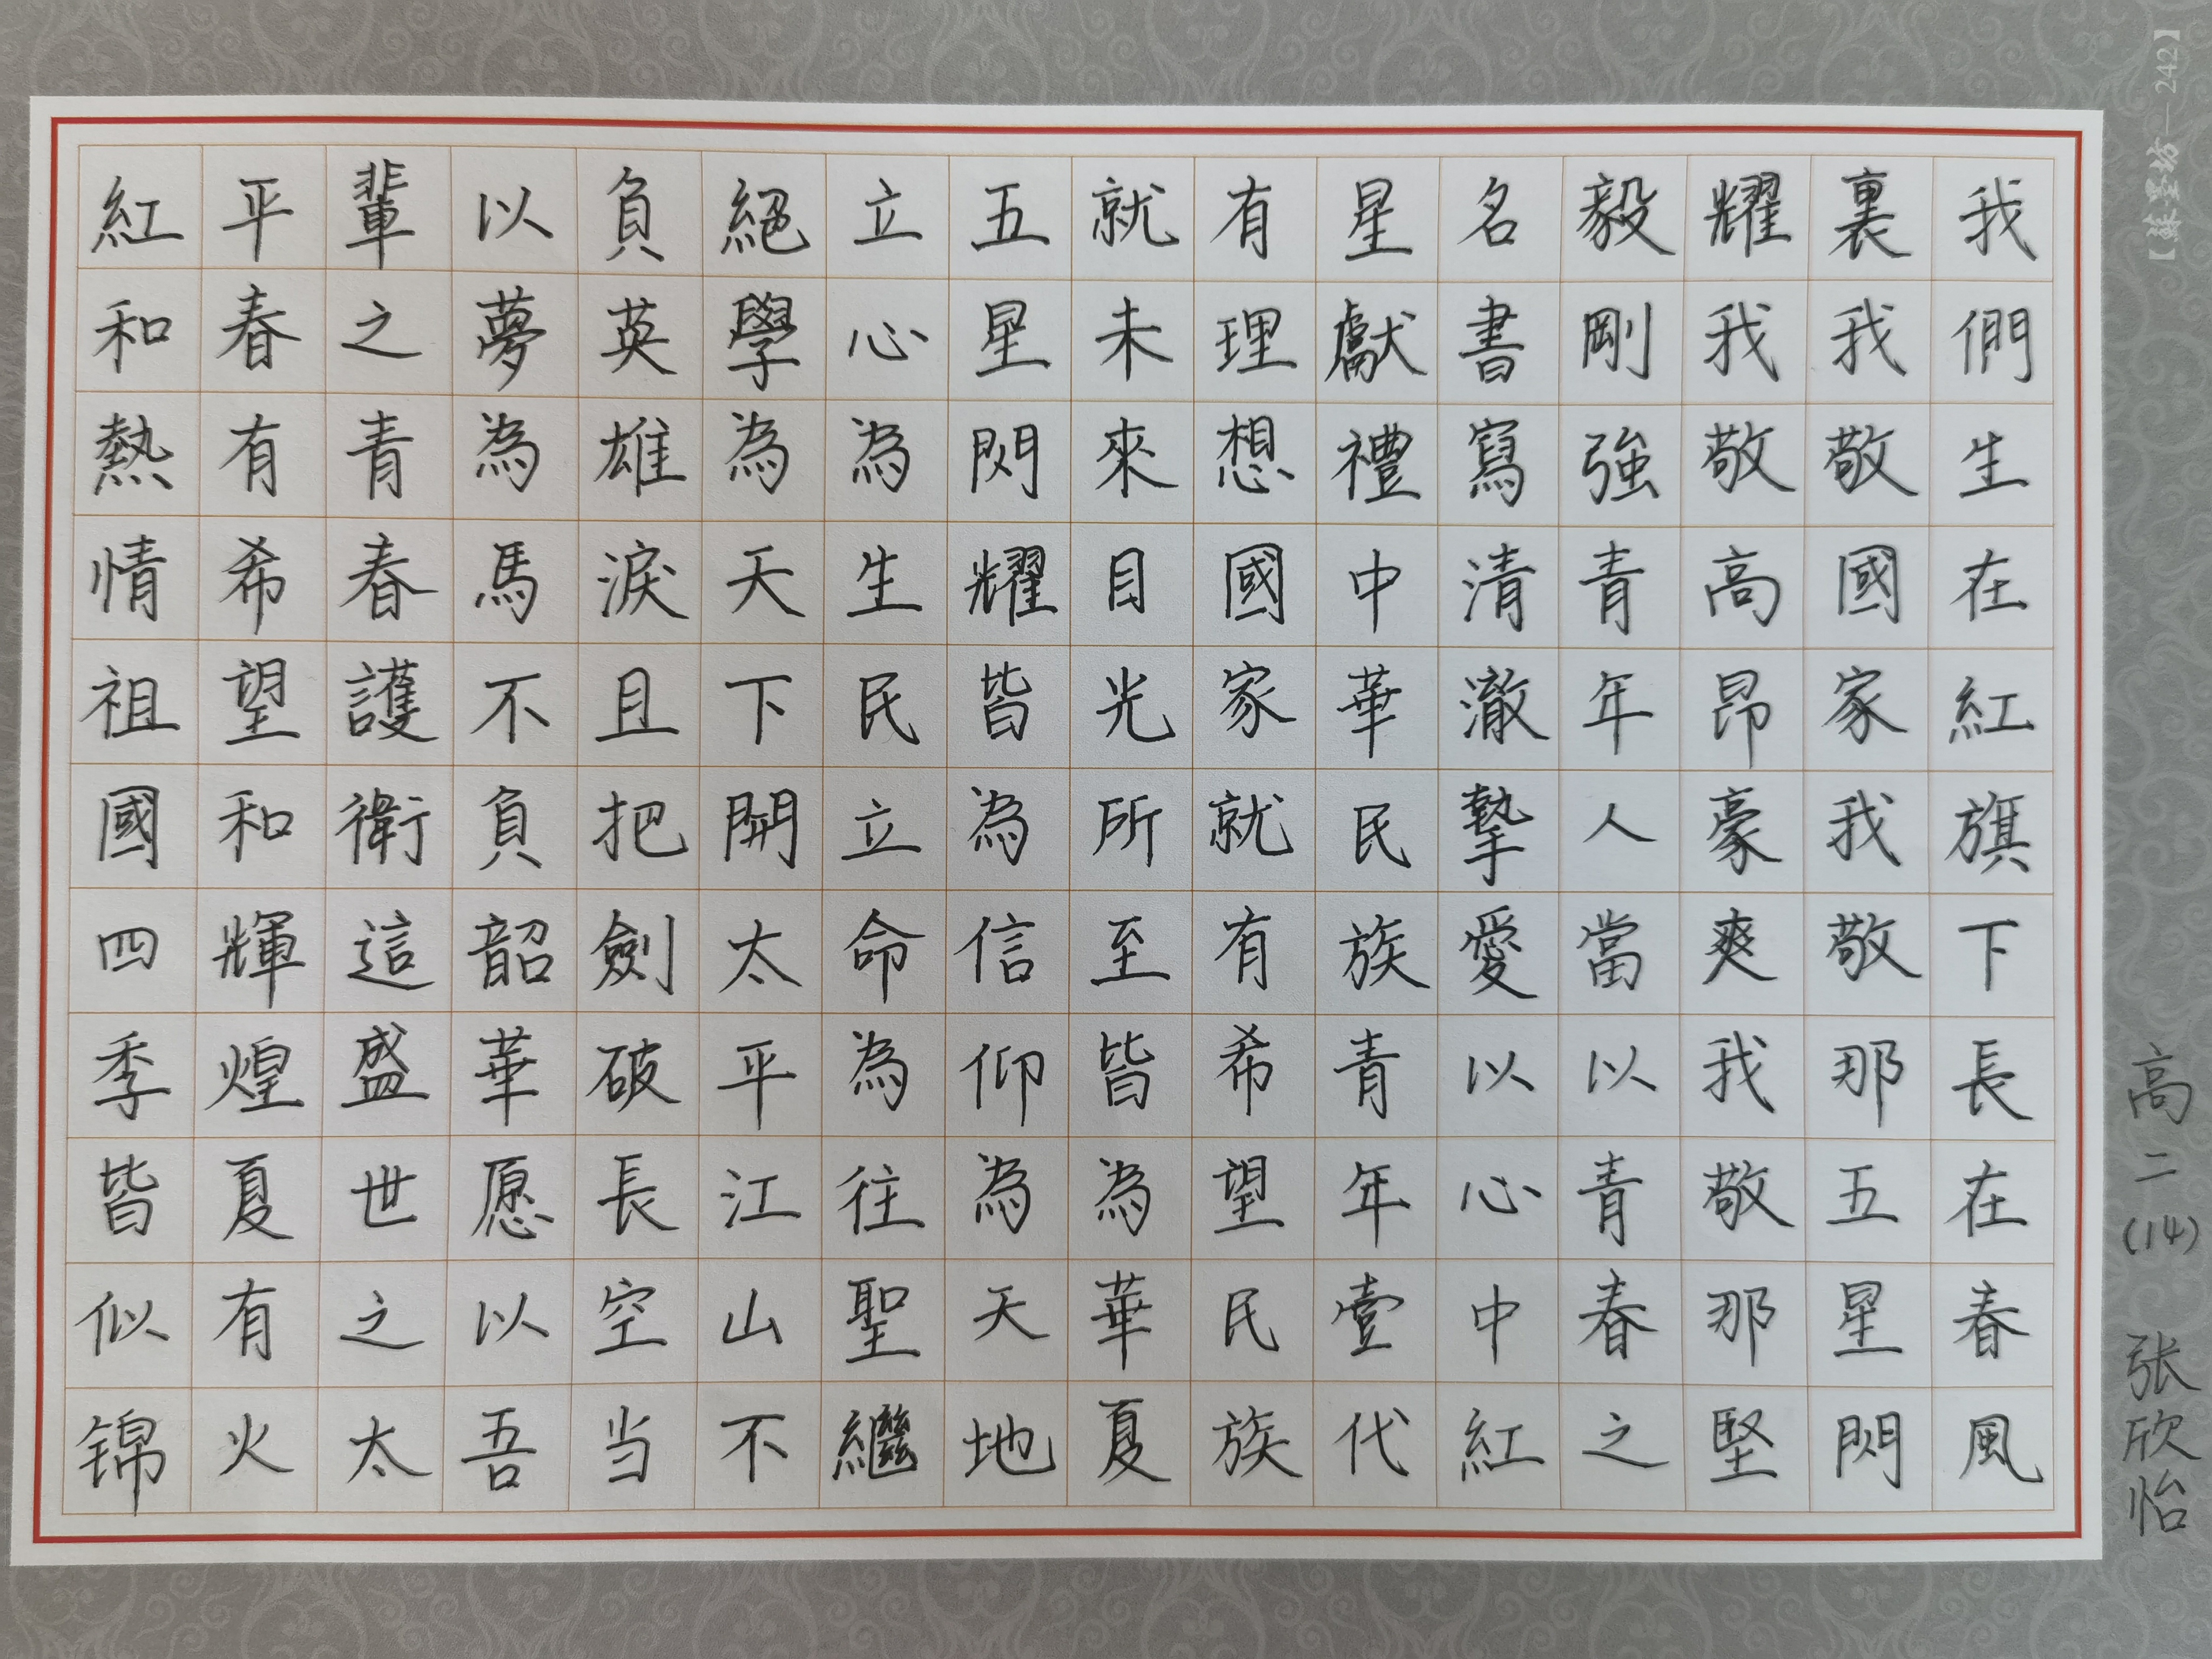 我們生在紅旗下長在春風
裏我敬國家我敬那五星閃
耀我敬高昂豪爽我敬那堅
毅剛強青年人當以青春之
名書寫清澈摯愛以心中紅
星獻禮中華民族青年壹代
有理想國家就有希望民族
就未來目光所至皆為華夏
五星閃耀皆為信仰為天地
立心為生民立命為往聖繼
絕學為天下開太平江山不
負英雄淚且把劍破長空当
以夢為馬不負韶華愿以吾
輩之青春護衛這盛世之太
平春有希望和輝煌夏有火
紅和熱情祖國四季皆似锦
高二(14) 张欣怡
【蘇墨坊—242】